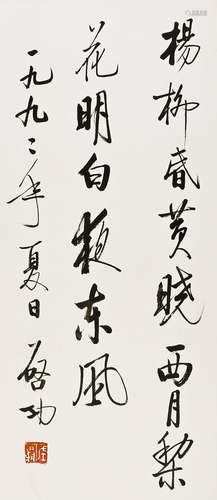 楊柳昏黄曉西月棃
花明白夜東風
一九九二年夏日啓功